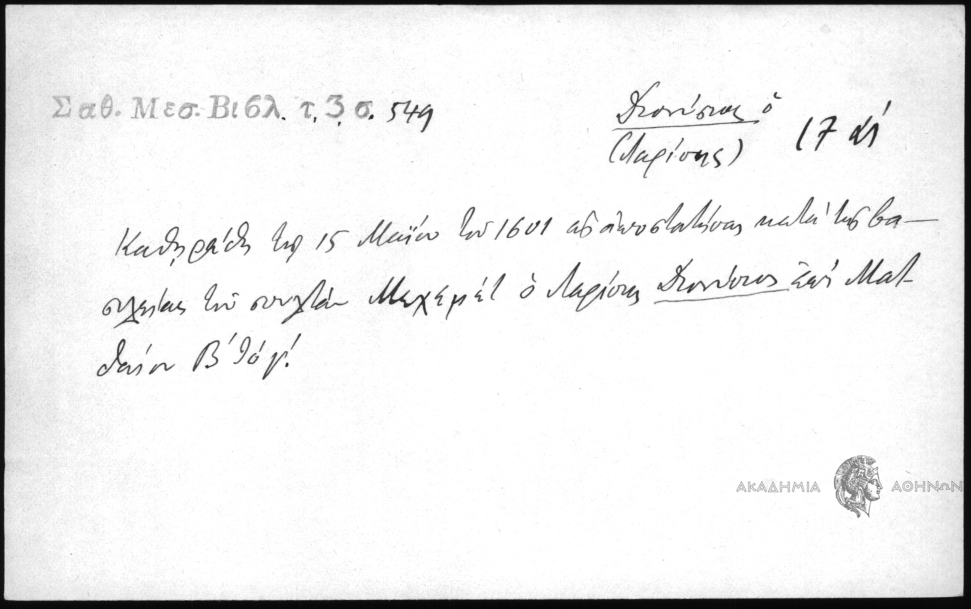 Σαθ. Μεσ. Βιβλ. τ. 3 σ. 549
Διονύσιος ὁ
(Λαρίσης)
17 αἰ
Καθῃρέθη τῇ 15 Μαΐου τοῦ 1601 ὡς ἀποστατήσας κατὰ τῆς βα-
σιλείας τοῦ σουλτὰν Μεχεμὲτ ὁ Λαρίσης Διονύσιος ἐπὶ Ματ-
θαίου Β'
ΑΚΑΔΗΜΙΑ ΑΘΗΝΩΝ